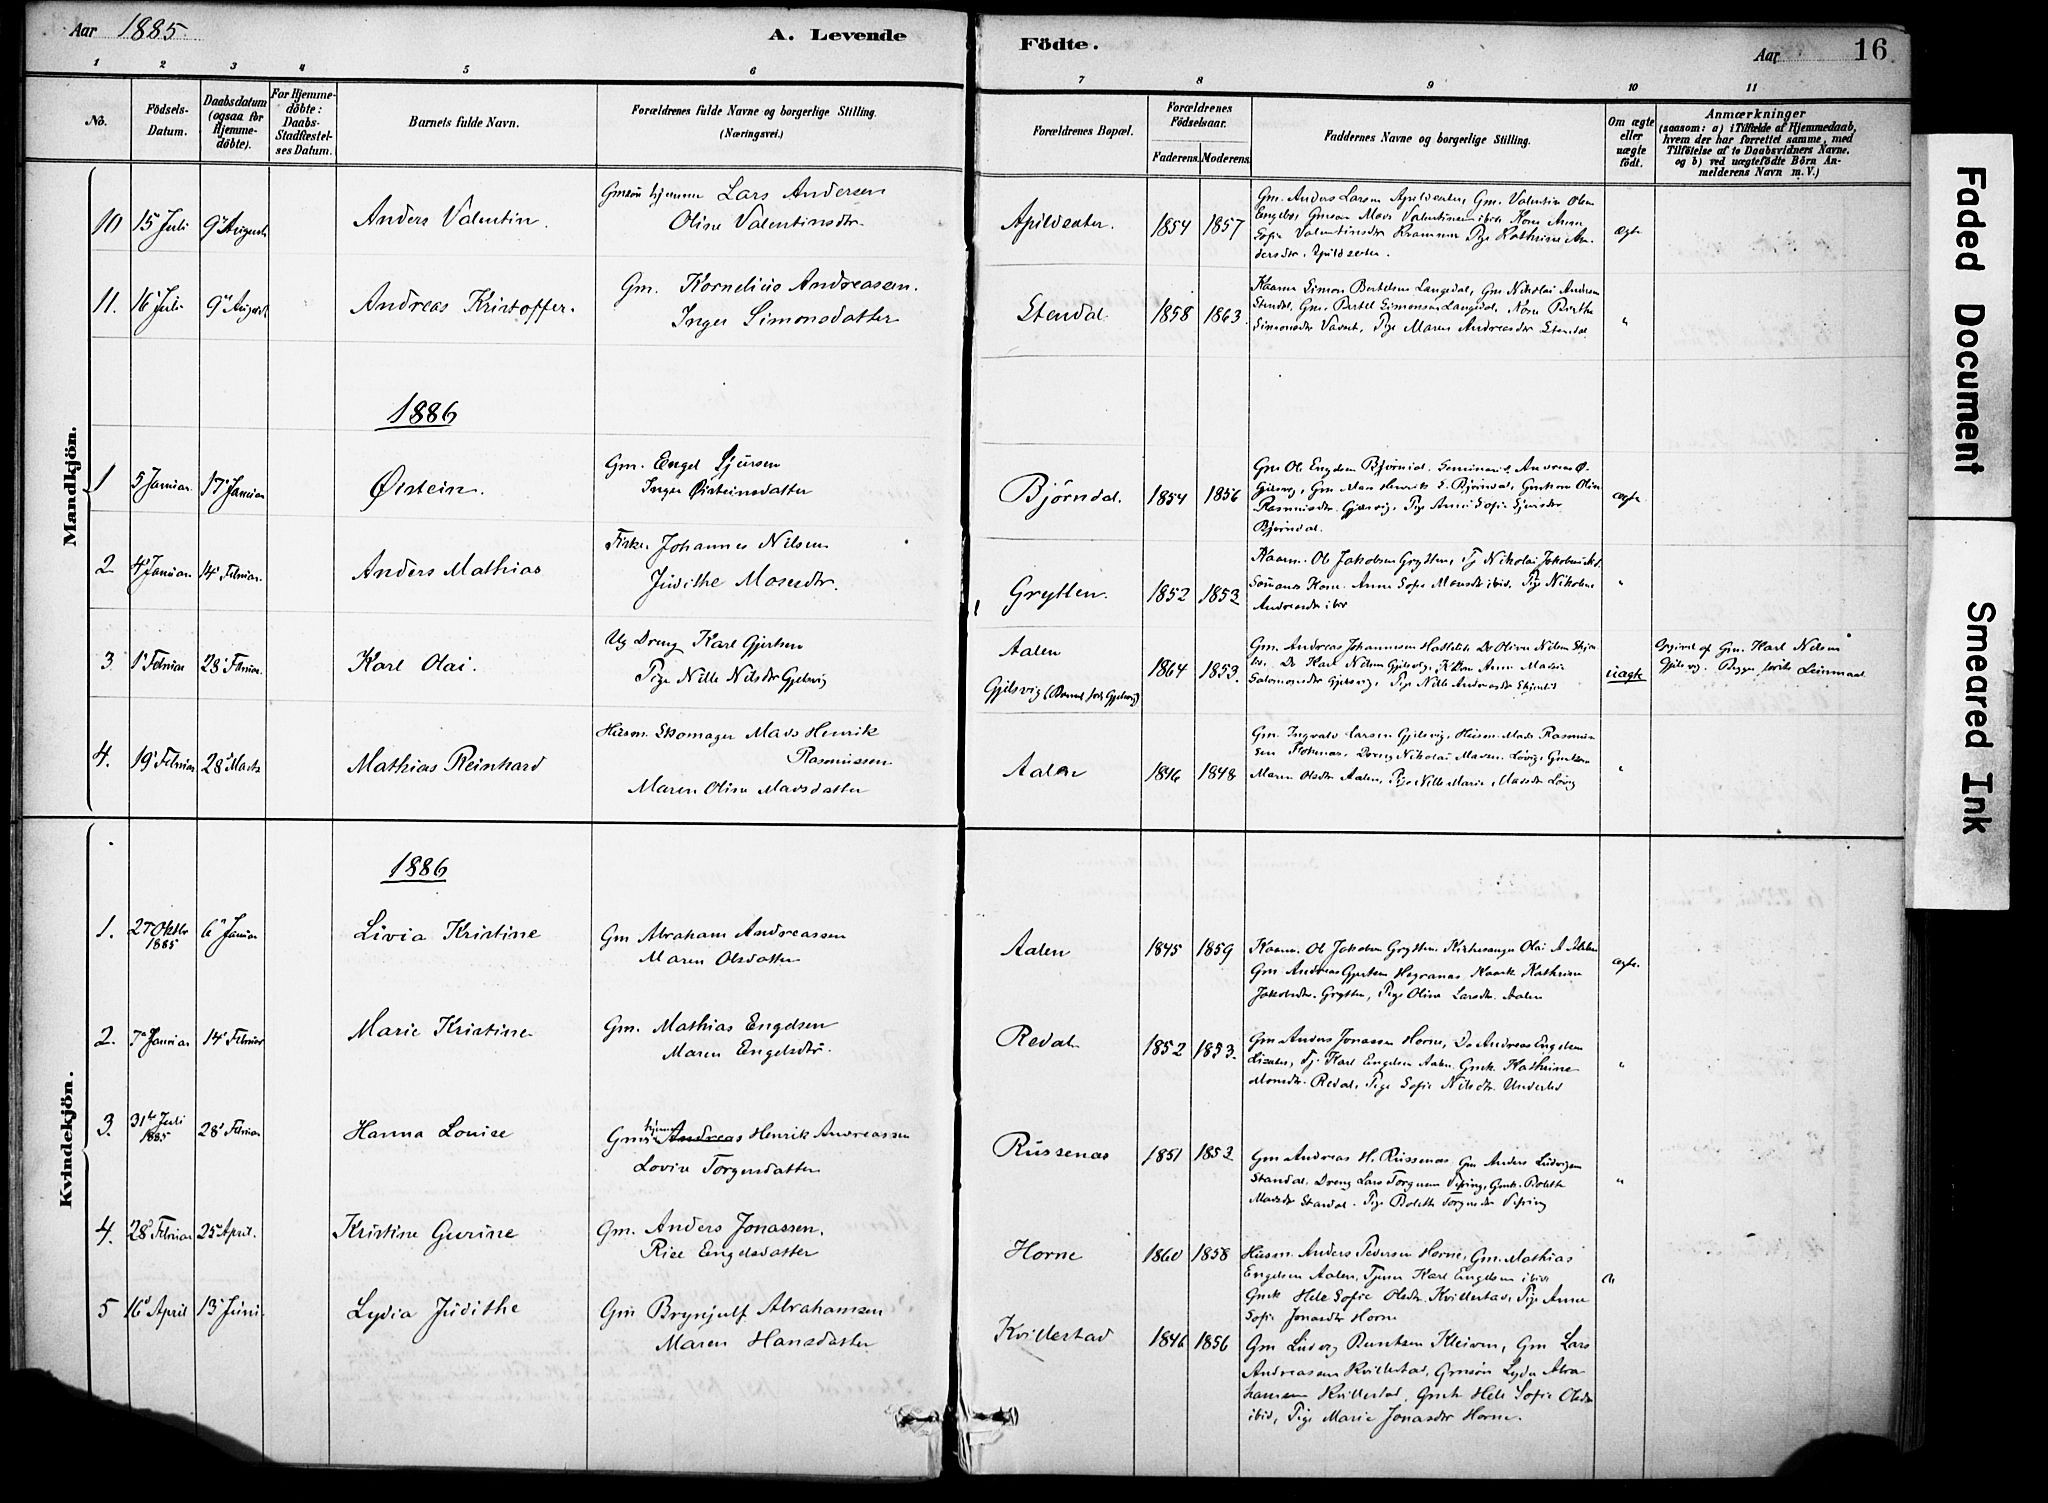 Aar 1885.
A. Levende
Födte.
Aar
16
1 2 3 4 5 6 7 8 9 10 11
No.
Födsels-
Datum.
Daabsdatum
(ogsaa for
Hjemme-
döbte).
For Hjemme-
döbte:
Daabs-
Stadfæstel-
ses Datum.
Barnets fulde Navn.
Forældrenes fulde Navne og borgerlige Stilling.
(Næringsvei.)
Forældrenes Bopæl.
Forældrenes
Födselsaar.
Faderens. Moderens.
Faddernes Navne og borgerlige Stilling.
Om ægte
eller
uægte
födt.
Anmærkninger
(saasom: a) i Tilfælde af Hjemmedaab,
hvem der har forrettet samme, med
Tilföielse af to Daabsvidners Navne.
og b) ved uægtefödte Börn An-
melderens Navn m. V.)
Mandkjön.
10 15 Juli 9 August Anders Valentin. Gmsön hjemme Lars Andersen
Oline Valentinsdtr
Apildsæter. 1854 1857
Gm. Anders Larsen Apildsæter, Gm. Valentin Olsen
Engelset, Gmsøn Mads Valentinsen ibid. Kone Anne
Sofie Valentinsdtr Brammer Pige Kathrine An-
dersdtr. Apildsæter.
ægte
11. 16 Juli 9 August Andreas Kristoffer. Gm. Kornelius Andreasen.
Inger Simonsdatter
Stendal. 1858 1863.
Kaarm Simon Bertelsen Langedal, Gm Nikolai Andersen
Stendal, Gm. Bertel Simonsen Langedal, Kone Berthe
Simonsdtr Vadset, Pige Maren Andreasdtr Stendal
"
1886
1 5 Januar. 17 Januar Øistein. Gm. Engel Sjursen
Inger Øisteinsdatter
Björndal. 1854 1856
Gm Ole Engelsen Bjørndal. Seminarist. Andreas O.
Gjelsvig, Gm Mads Henrik S. Bjørndal, Gmkone Oline
Rasmusdtr. Gjelsvig, Pige Anne Sofie Sjursdtr
Bjørndal.
ægte
2 4 Januar. 14 Februar. Anders Mathias Fisker Johannes Nilsen
Judithe Monsdtr.
Grytten. 1852 1853
Kaarm. Ole Jakobsen Grytten, Tj Nikolai Jakobsen
Kone. Anne Sofie Monsdtr ibid. Pige Nikoline
Andreasdtr ibid
"
3 1 Februar 28 Februar. Karl Olai. Ug Dreng Karl Gjertsen
Pige Nille Nilsdtr Gjelsvig
Aalen
Gjelsvig (Barnet föds Gjelsvig) 1864 1853.
Gm. Andreas Johannesen Hatlelid Do Oliver Nilsen
Do Karl Nilsen Gjelsvig, Kone Anne Malie
Salomonsdtr Gjelsvig, Pige Nille Andreasdtr
uægte
Opgivet af Gm. Karl Nilsen
Gjelsvig. Begges første Leiermaal
4. 19 Februar 28 Marts Mathias Reinhard Husm. Skomager Mads Henrik
Rasmussen
Maren Oline Madsdatter
Aalen 1846 1848
Gm. Ingvald Larsen Gjelsvig, Husm. Mads Rasmus-
sen Flokenes, Dreng Nikolai Madsen Løvig, Gmkone
Maren Olsdtr Aalen, Pige Nille Marie Madsdtr Løvig
"
Kvindekjön.
1886
1. 27 Oktbr
1885 6 Januar Livia Kristine Gm Abraham Andreassen
Maren Olsdatter
Aalen 1845 1859
Kaarm. Ole Jakobsen Grytten. Kirkesanger Olai A Aalen
Gm Andreas Gjertsen Hegranæs Kaark Kathrine
Jakobsdtr. Grytten, Pige Oline Larsdtr. Aalen
ægte.
2. 7 Januar 14 Februar Marie Kristine Gm. Mathias Engelsen
Maren Engelsdtr.
Redal 1852 1853.
Gm Anders Jonassen Horne, Do Andreas Engelsen
Tj. Karl Engelsen Aalen. Gmk Kathrine
Monsdtr. Redal, Pige Sofie Nilsdtr. Underlid
"
3. 31te Juli
1885 28 Februar Hanna Louise Gmsøn hjemme Andreas Henrik Andreassen
Lovise Torgersdatter
Russenæs 1851 1853
Gm Andreas H. Russenæs Gm Anders Ludvigsen
Standal. Dreng Lars Torgersen Vefring, Gmk. Bolette
Madsdtr Standal. Pige Bolette Torgersdtr Vefring
"
4. 28 Februar 25 April. Kristine Gurine Gm. Anders Jonassen.
Rise Engelsdatter
Horne 1860 1858
Husm. Anders Pedersen Horne, Gm. Mathias
Engelsen Aalen, Tjener Karl Engelsen ibid.
Gmk Hele Sofie Olsdtr. Kvillestad, Pige Anne
Sofie Jonasdtr Horne
"
5 16 April 13 Juni Lydia Judithe Gm Brynjulf Abrahamsen
Maren Hansdatter
Kvillestad 1846 1856
Gm Ludvig Berntsen Kleiven, Gm Lars
Andreassen Kvillestad, Gmsøn Lyder Abra
hamsen Kvillestad, Gmk Hele Sofie Olsdtr
ibid, Pige Marie Jonasdtr Horne.
Faded Document
Smeared Ink